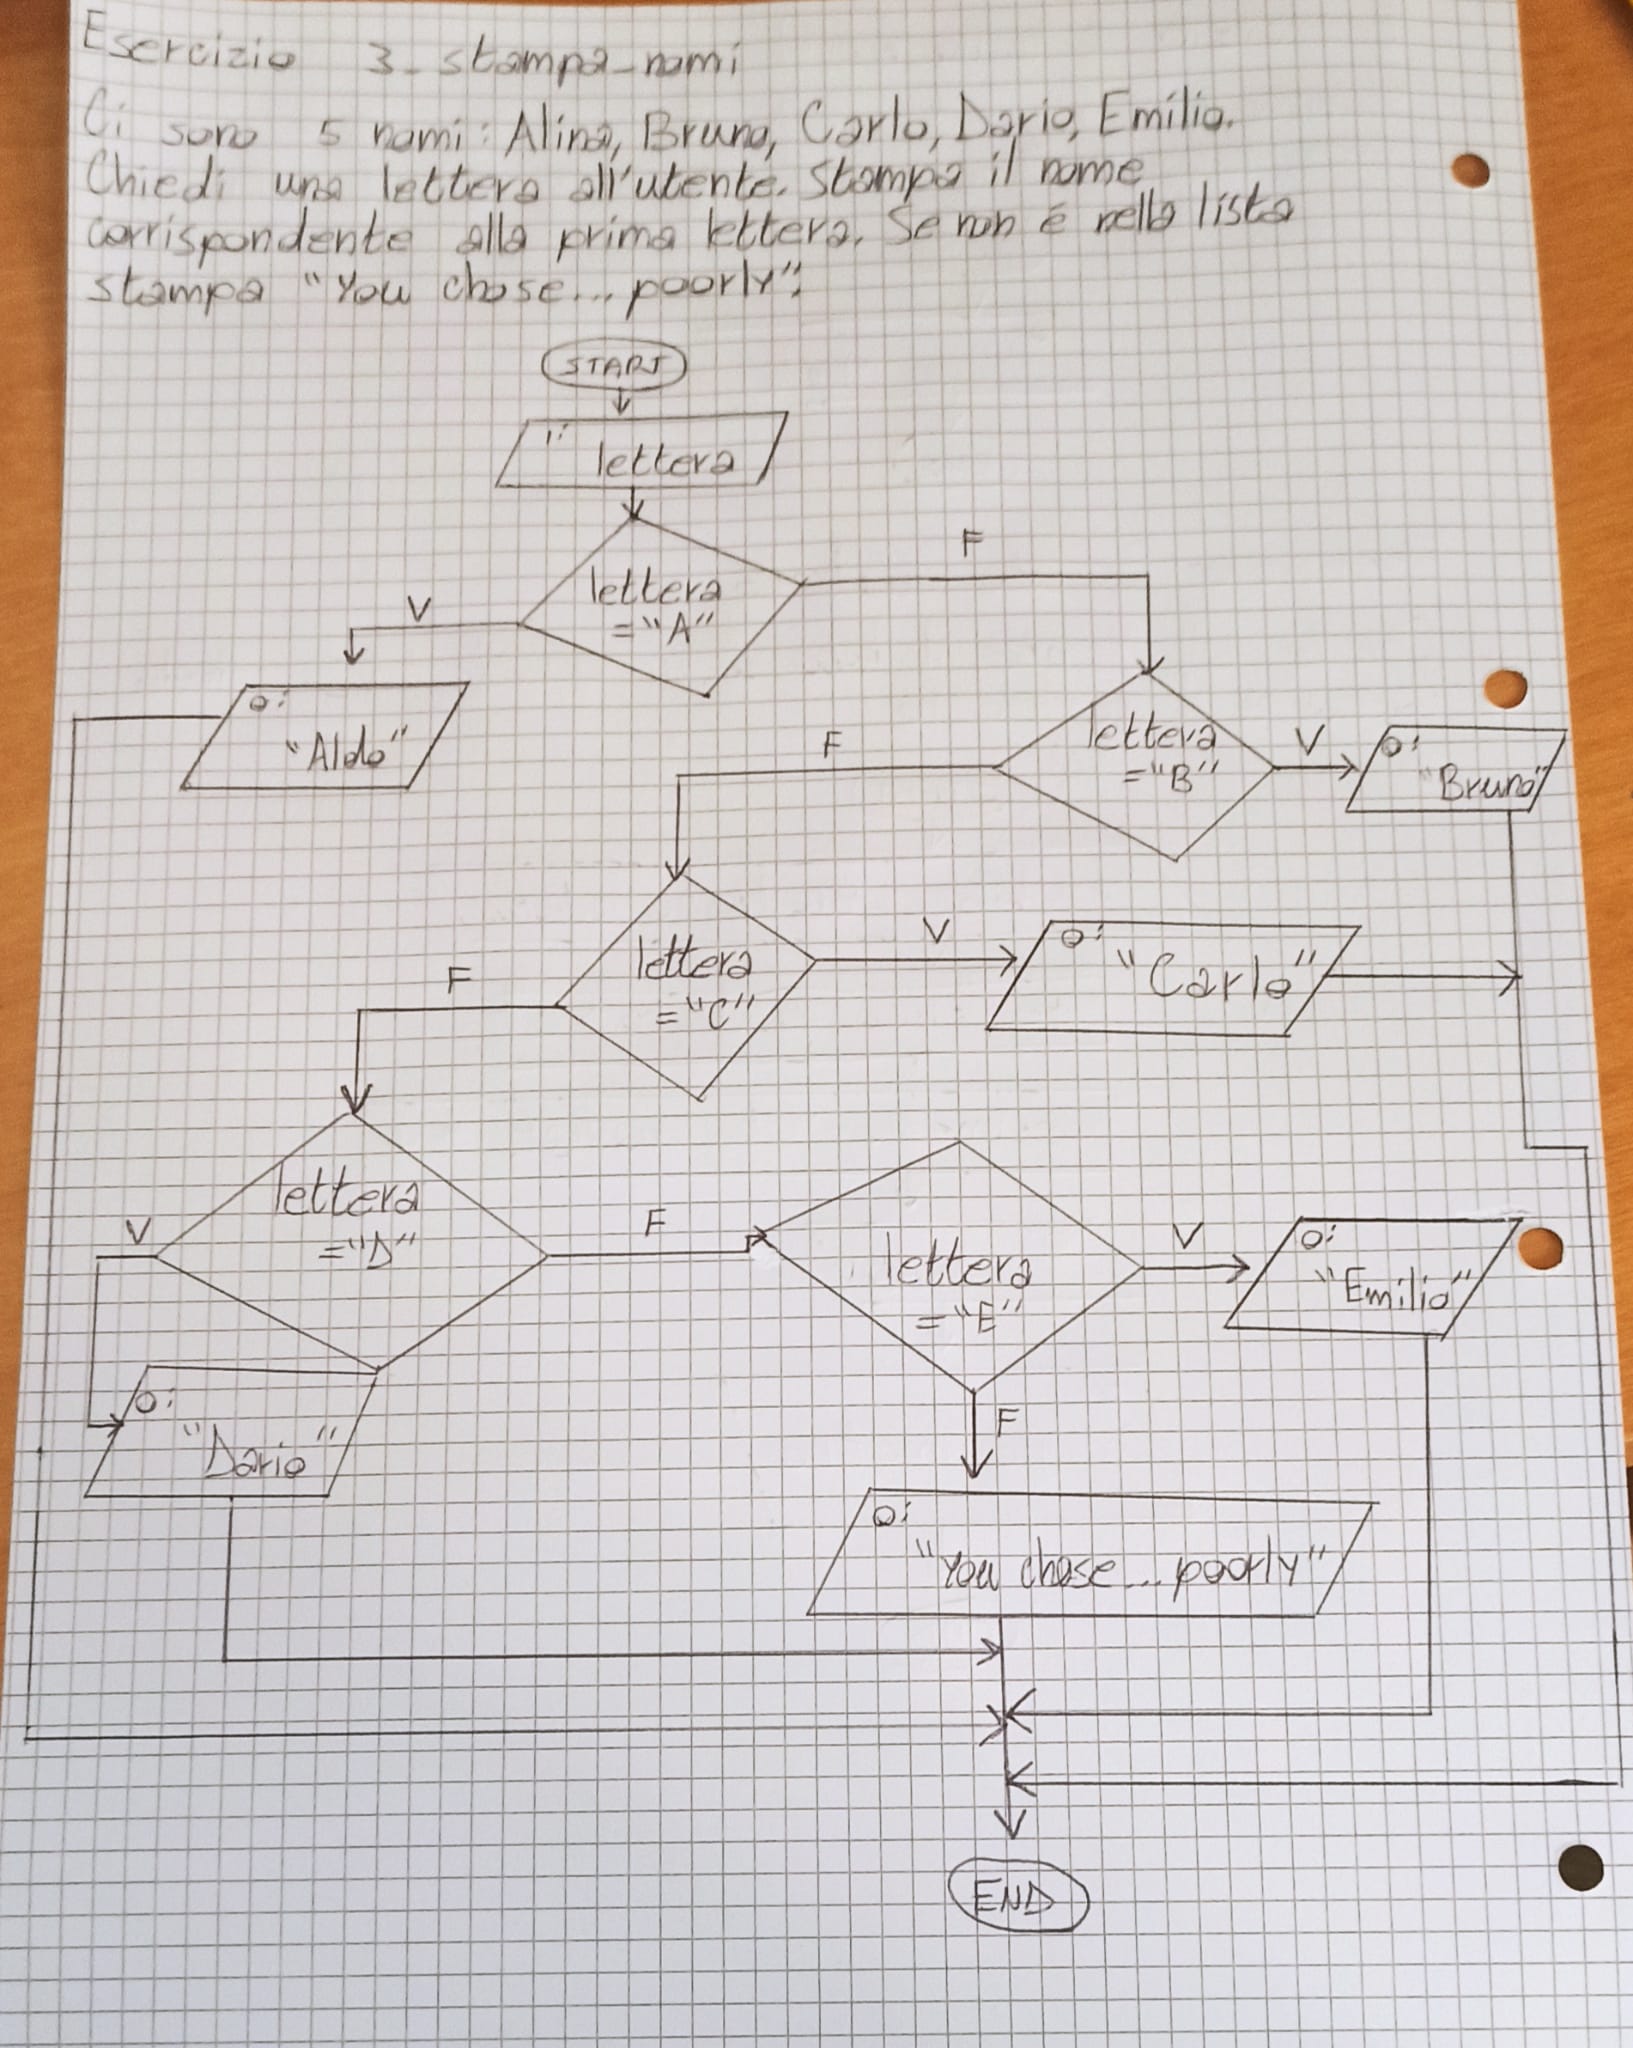 Esercizio 3_stampa_nomi
Ci sono 5 nomi: Alina, Bruno, Carlo, Dario, Emilio.
Chiedi una lettera all'utente. Stampa il nome
corrispondente alla prima lettera. Se non è nella lista
stampa "You chose... poorly".
START
i:
lettera
lettera
="A"
V
F
o:
"Aldo"
lettera
="B"
F
V
o:
"Bruno"
lettera
="C"
F
V
o:
"Carlo"
lettera
="D"
V
F
o:
"Dario"
lettera
="E"
V
F
o:
"Emilio"
o:
"You chose... poorly"
END